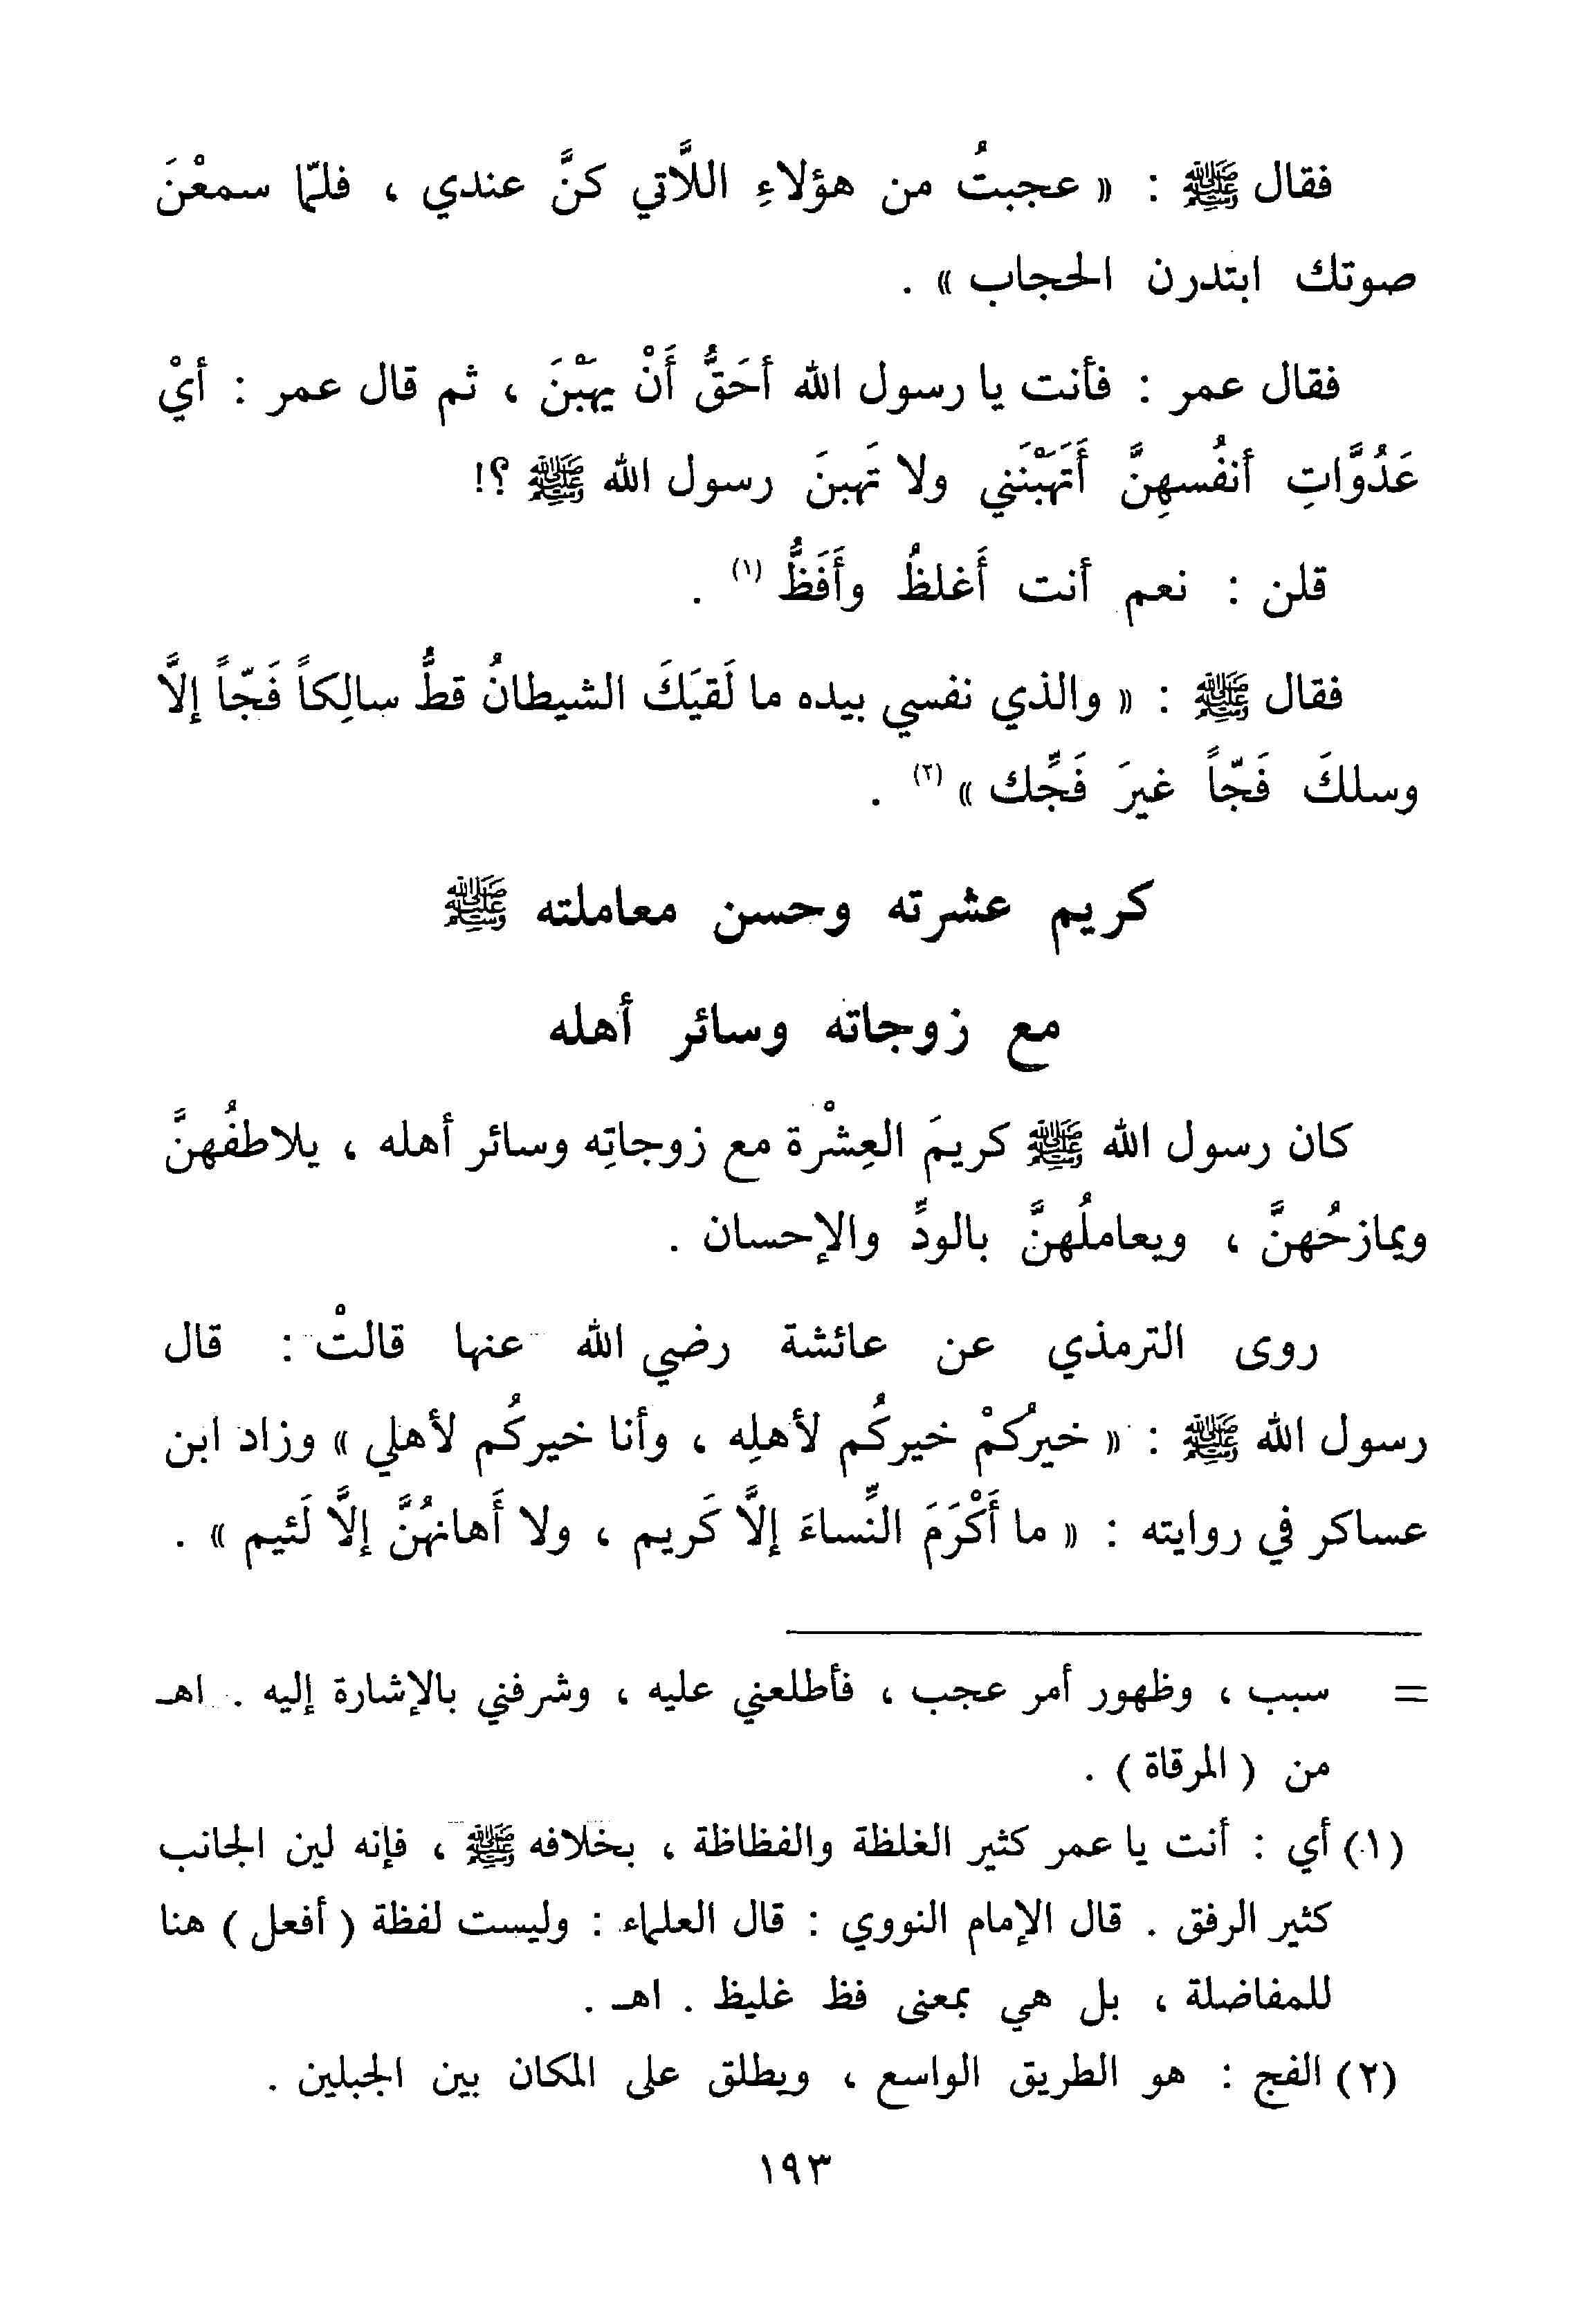 فقال ﷺ : « عجبتُ من هؤلاءِ اللَّاتي كنَّ عندي ، فلمّا سمعْنَ
صوتك ابتدرن الحجاب » .
فقال عمر : فأنت يا رسول الله أحَقُّ أَنْ يهَبْنَ ، ثم قال عمر : أيْ
عَدُوَّاتِ أنفُسهِنَّ أَتَهَبْنَني ولا تَهبنَ رسول الله ﷺ ؟!
قلن : نعم أنت أَغلظُ وأَفَظُّ (١) .
فقال ﷺ : « والذي نفسي بيده ما لَقيَكَ الشيطانُ قطُّ سالِكاً فَجّاً إلاَّ
وسلكَ فَجّاً غيرَ فَجِّك » (٢) .
كريم عشرته وحسن معاملته ﷺ
مع زوجاته وسائر أهله
كان رسول الله ﷺ كريمَ العِشْرة مع زوجاتِه وسائر أهله ، يلاطفُهنَّ
ويمازحُهنَّ ، ويعاملُهنَّ بالودِّ والإحسان .
روى الترمذي عن عائشة رضي الله عنها قالتْ : قال
رسول الله ﷺ : « خيرُكمْ خيركُم لأهلِه ، وأنا خيركُم لأهلي » وزاد ابن
عساكر في روايته : « ما أَكْرَمَ النِّساءَ إلاَّ كَريم ، ولا أَهانهُنَّ إلاَّ لَئيم » .
= سبب ، وظهور أمر عجب ، فأطلعني عليه ، وشرفني بالإشارة إليه . اهـ
من ( المرقاة ) .
(١) أي : أنت يا عمر كثير الغلظة والفظاظة ، بخلافه ﷺ ، فإنه لين الجانب
كثير الرفق . قال الإمام النووي : قال العلماء : وليست لفظة ( أفعل ) هنا
للمفاضلة ، بل هي بمعنى فظ غليظ . اهـ .
(٢) الفج : هو الطريق الواسع ، ويطلق على المكان بين الجبلين .
١٩٣